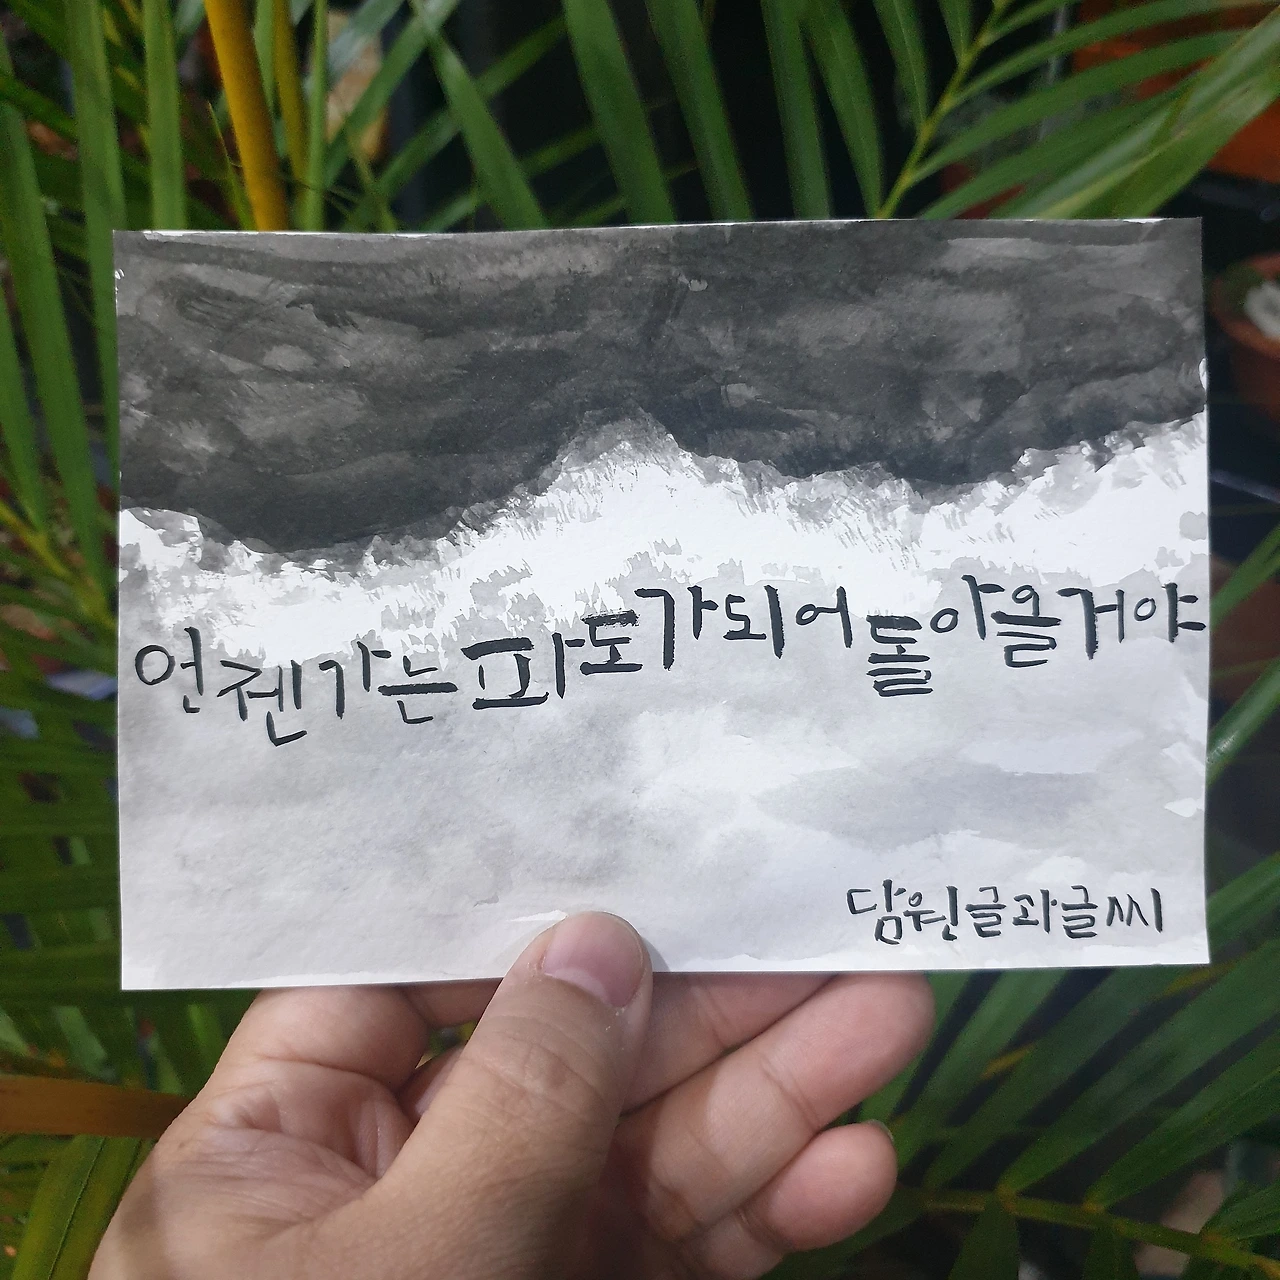 언젠가는 파도가 되어 돌아올거야
담원글과글씨